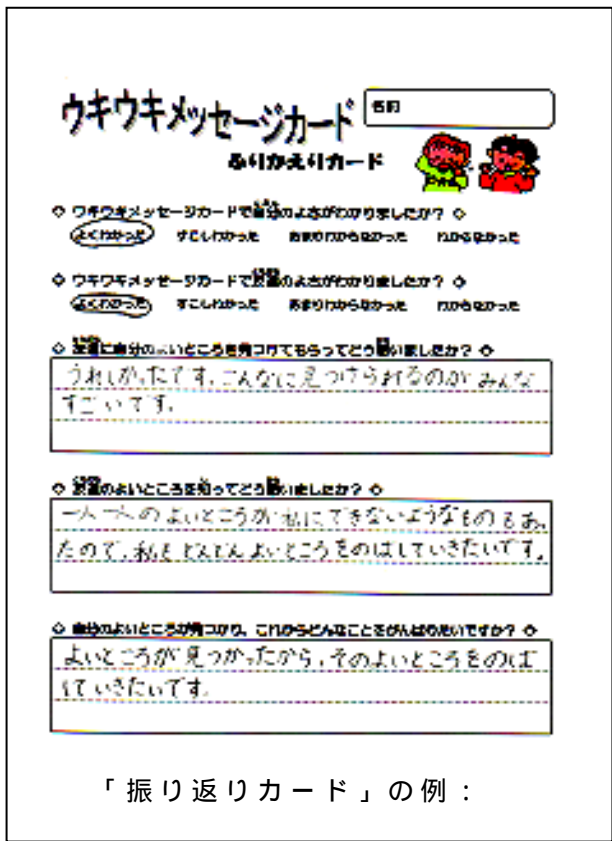 ウキウキメッセージカード
名前
ふりかえりカード
◇ ウキウキメッセージカードで自分のよさがわかりましたか? ◇
よくわかった すこしわかった あまりわからなかった わからなかった
◇ ウキウキメッセージカードで友達のよさがわかりましたか? ◇
よくわかった すこしわかった あまりわからなかった わからなかった
◇ 友達に自分のよいところを見つけてもらってどう思いましたか? ◇
うれしかったです。こんなに見つけられるのがみんな
すごいです。
◇ 友達のよいところを知ってどう思いましたか? ◇
一人一人のよいところが私にできないようなものもあっ
たので、私もどんどんよいところをのばしていきたいです。
◇ 自分のよいところが見つかり、これからどんなことをがんばりたいですか? ◇
よいところが見つかったから、そのよいところをのば
していきたいです。
「振り返りカード」の例: